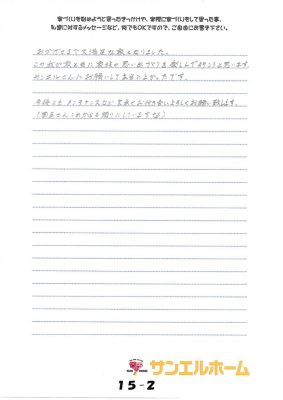 家づくりを始めようと思ったきっかけや、実際に家づくりをして思った事、
私達に対するメッセージなど、何でもOKですので、ご自由にお書き下さい。
おかげさまで大満足な家となりました。
この我が家と共に家族の思い出づくりを楽しんで行こうと思います。
サンエルさんにお願いして本当によかったです。
今後ともメンテナンスなど末永くお付き合いよろしくお願い致します。
さんこれからも頼りにしていますね)
サンエルホーム
15-2